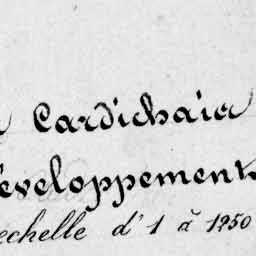 Cardichaia
éveloppement
echelle d'1 à 1250